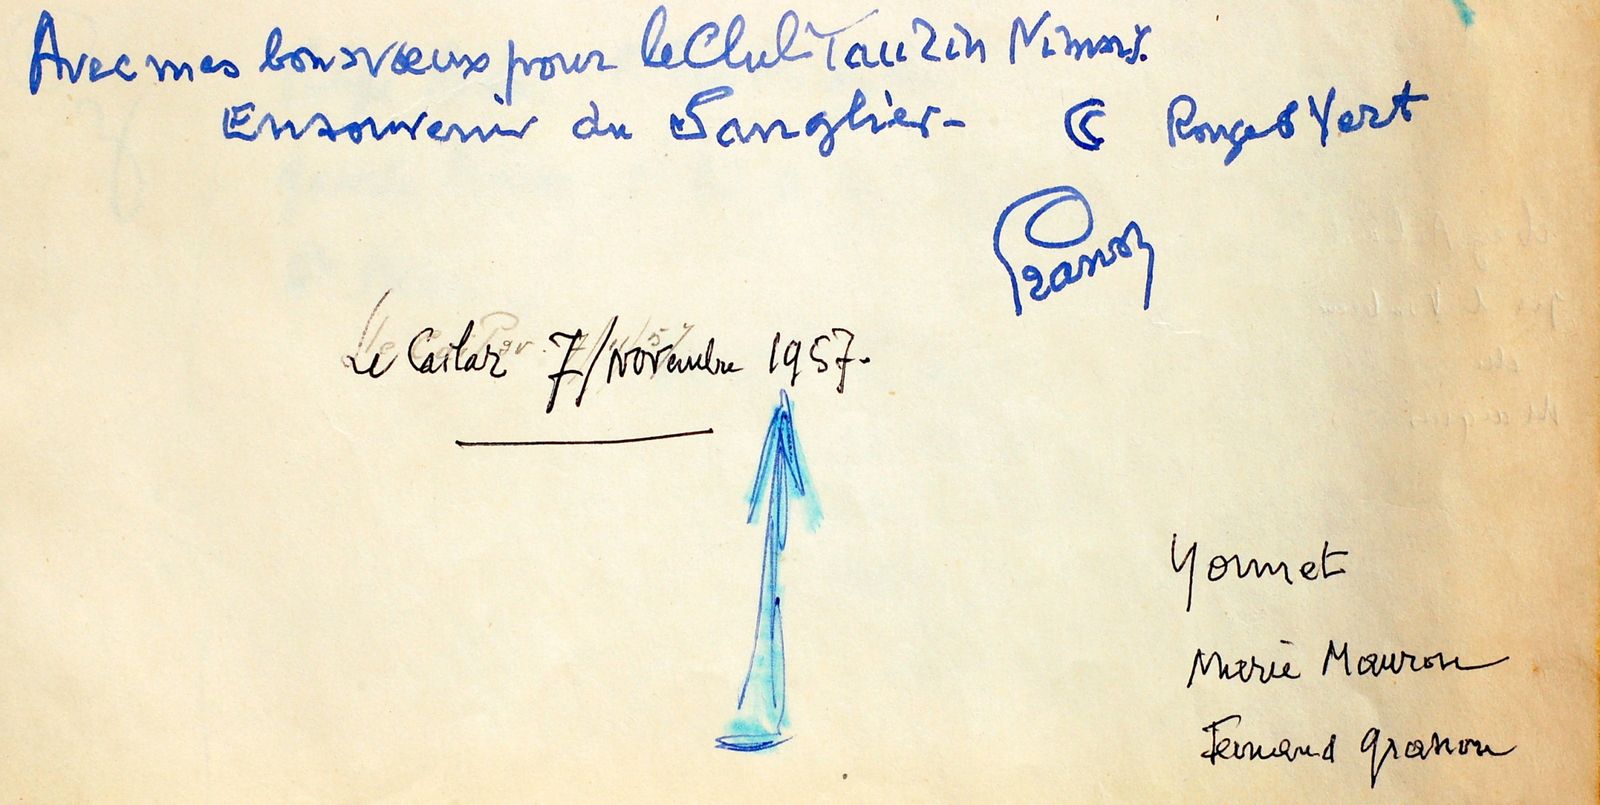 Avec mes bons vœux pour le Club Taurin Nimois.
En souvenir du Sanglier - Rouge & Vert
Granon
Le Cailar 7/novembre 1957.
Yonnet
Marie Mauron
Fernand Granon